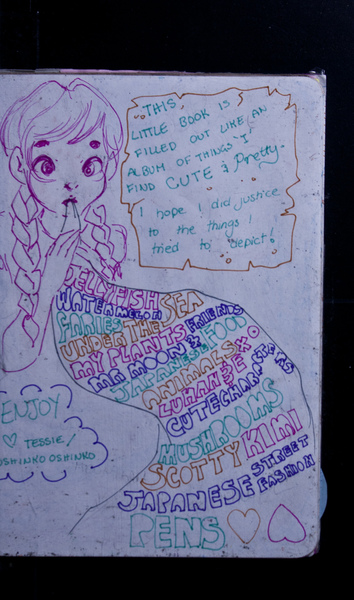 THIS
LITTLE BOOK IS
FILLED OUT LIKE AN
ALBUM OF THINGS "I"
FIND CUTE & Pretty.
I hope I did justice
to the things I
tried to depict!
JELLYFISH
WATERMELON
SEA
FARIES
UNDER THE
MY PLANTS FRIENDS
MR MOON &
JAPANESE FOOD
ANIMALS XO
LUHAN
CUTE CHARACTERS
MUSHROOMS
SCOTTY KIMI
JAPANESE STREET
FASHION
PENS
ENJOY
TESSIE/
OSHINKO OSHINKO